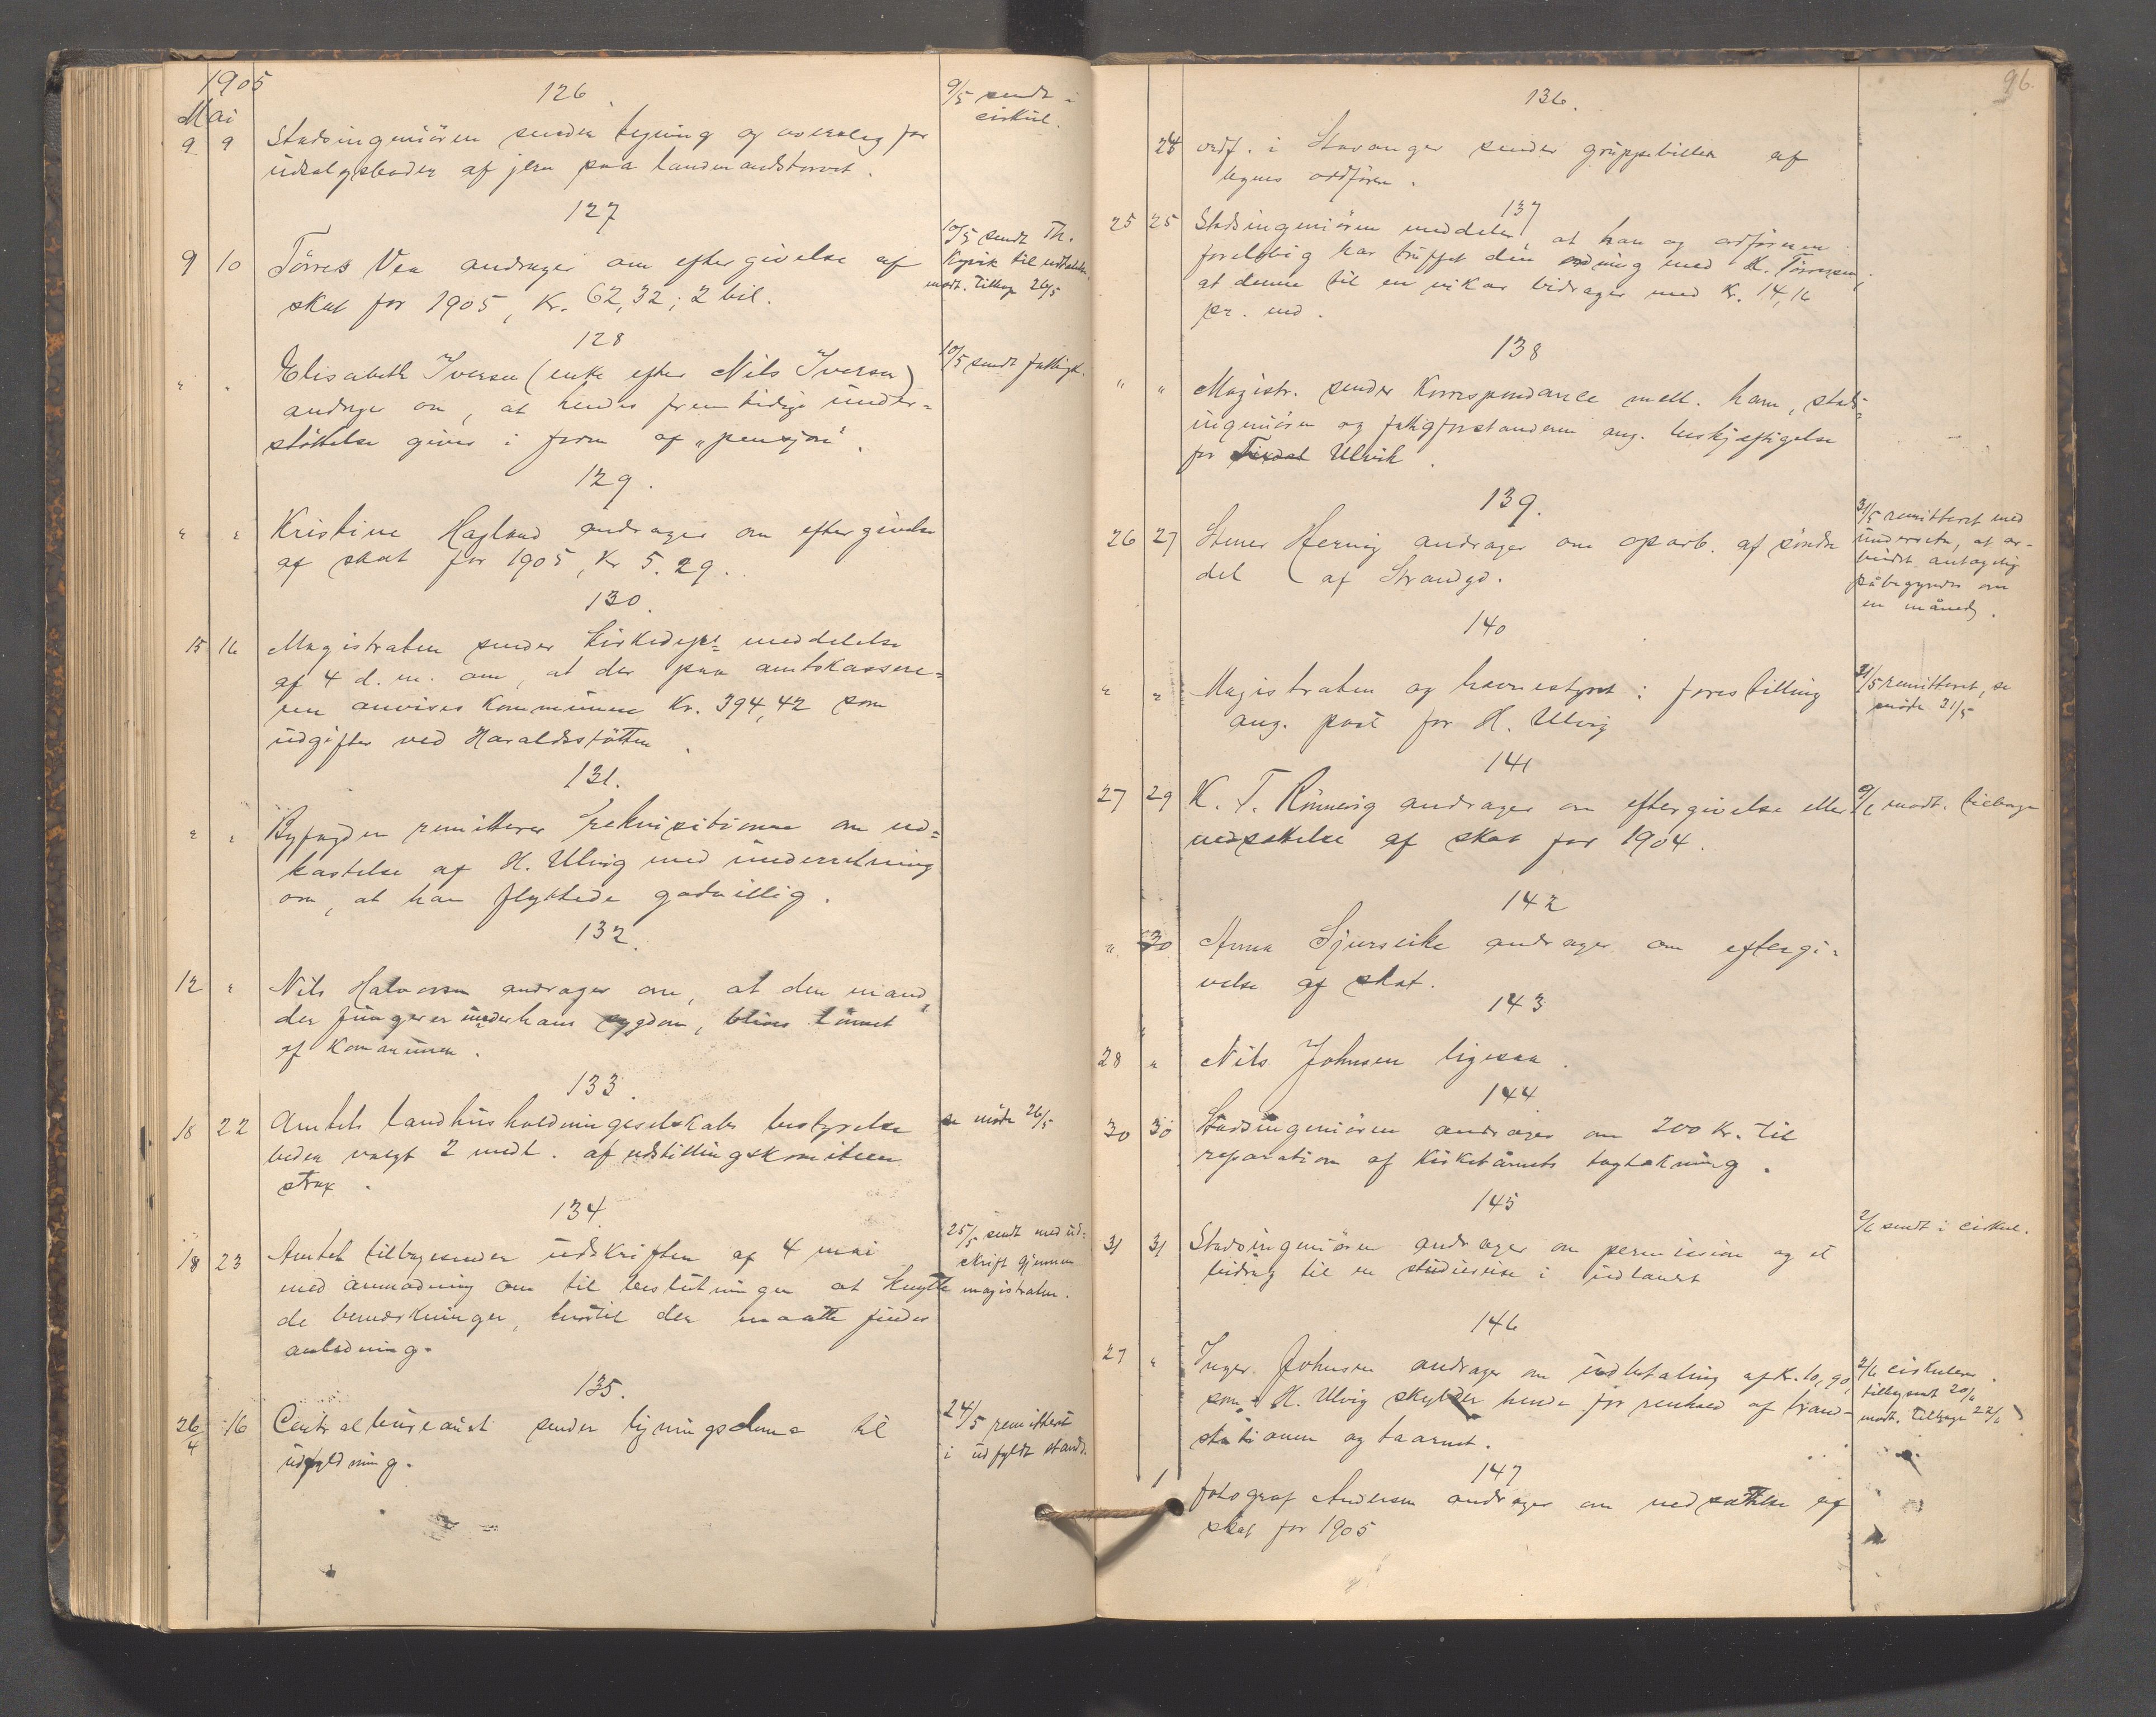 1905
Mai
126
9 9 Stadsingeniören sender tegning og overslag for
udsalgsboder af jern paa landmandstorvet.
9/5 sendt i
cirkul.
127
9 10 Törres Vea andrager om eftergivelse af
skat for 1905, Kr. 62,32; 2 bil.
10/5 sendt Th.
Kyvik til udtalelse
modt. tilbage 26/5
128
" " Elisabeth Iversen (enke efter Nils Iversen)
andrager om, at hendes fremtidige under=
støttelse gives i form af „pensjon".
10/5 sendt fattigk.
129.
" " Kristine Hagland andrager om eftergivelse
af skat for 1905, Kr 5.29.
130.
15 16 Magistraten sender kirkedept= meddelelse
af 4 d. m. om, at der paa amtskassere=
ren anvises Kommunen Kr. 394,42 som
udgifter ved Haraldsstötten.
131.
" " Byfogden remitterer rekvisitionen om ud=
kastelse af H. Ulvig med underretning
om, at han flyttede godvillig.
132.
12 " Nils Halvorsen andrager om, at den mand,
der fungerer under hans sygdom, blive lönnet
af Kommunen.
133.
18 22 Amtets landhusholdningsselskabs bestyrelse
beder valgt 2 medl. af udstillingskomiteen
strax.
se möde 26/5
134.
18 23 Amtet tilbagesender udskriften af 4 mai
med anmodning om til beslutningen at knytte
de bemerkninger, hvortil der maatte findes
anledning.
25/5 sendt med ud=
skrift gjennem
magistraten.
135.
26/4 16 Centralbureauet sender ligningsskema til
udfyldning.
24/5 remitteret
i udfyldt stand.
96.
136.
24 ordf. i Stavanger sender gruppebillede af
byens ordförere.
137
25 25 Stadsingeniören meddeler, at han og ordföreren
foreløbig har truffet den ordning med K. Törresen,
at denne til en vikar bidrager med Kr. 14,16
pr. md.
138
" " Magistr. sender Korrespondance mell. ham, stads=
ingeniören og fattigforstanderen ang. beskjeftigelse
for Ulvik.
139.
26 27 Stener Hervig andrager om oparb. af söndre
del af Strandgd.
31/5 remitteret med
underretn. at ar-
beidet antagelig
påbegyndes om
en måned.
140
" " Magistraten og havnestyret: forestilling
ang. post for H. Ulvig
31/5 remitteret, se
möde 31/5
141
27 29 K. T. Rönnevig andrager om eftergivelse eller
nedsættelse af skat for 1904.
9/6 modt. tilbage
142
" 30 Anna Sjurseike andrager om eftergi=
velse af skat.
143
28 " Nils Johnsen ligesaa.
144
30 30 Stadsingeniören andrager om 200 Kr. til
reparation af Kirketårnets tagtækning.
145
31 31 Stadsingeniören andrager om permission og et
bidrag til en studiereise i udlandet
2/6 sendt i cirkul.
146
27 " Inger Johnsen andrager om udbetaling af Kr. 10,90,
som H. Ulvig skylder hende for renhold af brand-
stationen og taarnet.
2/6 cirkulere.
tilbagesendt 20/6
modt. tilbage 22/6
147
1 fotograf Andersen andrager om nedsættelse af
skat for 1905